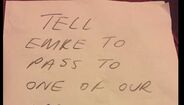 TELL
EMRE TO
PASS TO
ONE OF OUR